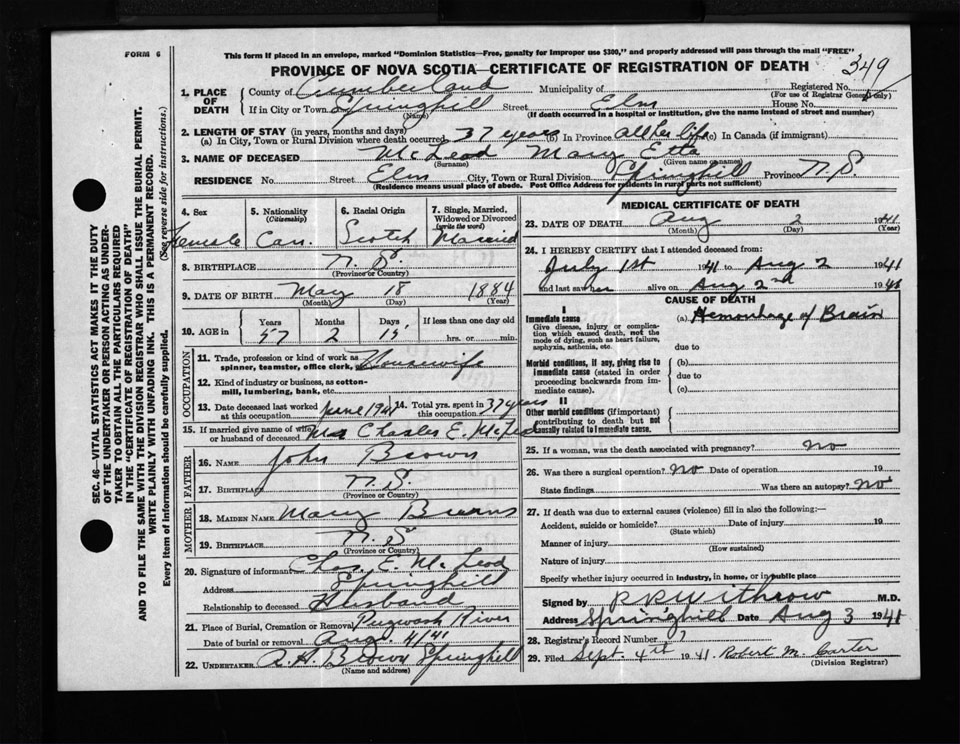 FORM 6
This form if placed in an envelope, marked "Dominion Statistics—Free, penalty for improper use $300," and properly addressed will pass through the mail "FREE"
PROVINCE OF NOVA SCOTIA—CERTIFICATE OF REGISTRATION OF DEATH
349
SEC. 46—VITAL STATISTICS ACT MAKES IT THE DUTY
OF THE UNDERTAKER OR PERSON ACTING AS UNDER-
TAKER TO OBTAIN ALL THE PARTICULARS REQUIRED
IN THE "CERTIFICATE OF REGISTRATION OF DEATH"
AND TO FILE THE SAME WITH THE DIVISION REGISTRAR WHO SHALL ISSUE THE BURIAL PERMIT.
WRITE PLAINLY WITH UNFADING INK. THIS IS A PERMANENT RECORD.
Every item of information should be carefully supplied. (See reverse side for instructions.)
1. PLACE OF DEATH
County of Cumberland Municipality of Registered No.
(For use of Registrar General only)
If in City or Town Springhill Street Elm House No.
(Name) (If death occurred in a hospital or institution, give the name instead of street and number)
2. LENGTH OF STAY (in years, months and days)
(a) In City, Town or Rural Division where death occurred 37 years (b) In Province all her life (c) In Canada (if immigrant)
3. NAME OF DECEASED McLeod Mary Etta
(Surname) (Given name or names)
RESIDENCE No. Street Elm City, Town or Rural Division Springhill Province N.S.
(Residence means usual place of abode. Post Office Address for residents in rural parts not sufficient)
4. Sex Female
5. Nationality (Citizenship) Can.
6. Racial Origin Scotch
7. Single, Married, Widowed or Divorced (write the word) Married
8. BIRTHPLACE N.S.
(Province or Country)
9. DATE OF BIRTH May 18 1884
(Month) (Day) (Year)
10. AGE in Years Months Days If less than one day old
57 2 15 hrs. or min.
OCCUPATION
11. Trade, profession or kind of work as spinner, teamster, office clerk, Housewife
12. Kind of industry or business, as cotton-mill, lumbering, bank, etc.
13. Date deceased last worked at this occupation June 1941 14. Total yrs. spent in this occupation 37 years
15. If married give name of wife or husband of deceased Mr Charles E. McLeod
FATHER
16. NAME John Brown
17. BIRTHPLACE N.S.
(Province or Country)
MOTHER
18. MAIDEN NAME Mary
19. BIRTHPLACE N.S
(Province or Country)
20. Signature of informant Chas. E. McLeod
Address Springhill
Relationship to deceased Husband
21. Place of Burial, Cremation or Removal Pugwash River
Date of burial or removal Aug. 4/41
22. UNDERTAKER A.H. Brown Springhill
(Name and address)
MEDICAL CERTIFICATE OF DEATH
23. DATE OF DEATH Aug 2 1941
(Month) (Day) (Year)
24. I HEREBY CERTIFY that I attended deceased from:
July 1st 1941 to Aug 2 1941
and last saw her alive on Aug 2nd 1941
CAUSE OF DEATH
I
Immediate cause
Give disease, injury or complication which caused death, not the mode of dying, such as heart failure, asphyxia, asthenia, etc.
(a) Hemorrhage of Brain
due to
Morbid conditions, if any, giving rise to immediate cause (stated in order proceeding backwards from immediate cause).
(b)
due to
(c)
II
Other morbid conditions (if important) contributing to death but not causally related to immediate cause.
25. If a woman, was the death associated with pregnancy? no
26. Was there a surgical operation? no Date of operation 19
State findings Was there an autopsy? no
27. If death was due to external causes (violence) fill in also the following:—
Accident, suicide or homicide? Date of injury 19
(State which)
Manner of injury
(How sustained)
Nature of injury
Specify whether injury occurred in industry, in home, or in public place
Signed by Withrow M.D.
Address Springhill Date Aug 3 1941
28. Registrar's Record Number 7
29. Filed Sept. 4th 1941. Robert M. Carter
(Division Registrar)